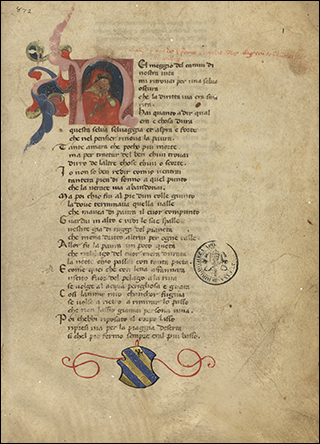 1
El meggio del camin di
nostra uita
mi ritrouai per una selua
che la diritta uia era
rita.
Hai quanto adir qual
era e chosa dura
questa selua seluaggia et aspra e forte
che nel pensier renoua la paura.
Tante amara che pocho piu morte
ma per tractar del ben chiui trouai
diro de laltre chose chiui o scorte
Io non so ben redir comio uentrai
tantera pien di sonno a quel punto
che la uerace uia abandonai.
Ma poi chio fui al pie dun colle giunto
la doue terminaua quella ualle
che mauea di paura il cuor compunto
Guardai in alto e uidi le sue spalle
uestite gia di raggi del pianeta
che mena dritto altrui per ogne calle
Allor fu la paura un poco queta
che nel lago del cuor mera durata
la nocte chio passai con tanta pieta.
E come quei che con lena affannata
uscito fuor del pelago a la riua
se uolge al acqua perigliosa e guata
Cosi lanimo mio fuggiua
se uolse a retro a rimirar lo passo
che non lasso giamai persona uiua.
Poi chebbi riposato el corpo lasso
ripresi uia per la piaggia deserta
si chel pie fermo sempre era l piu basso.